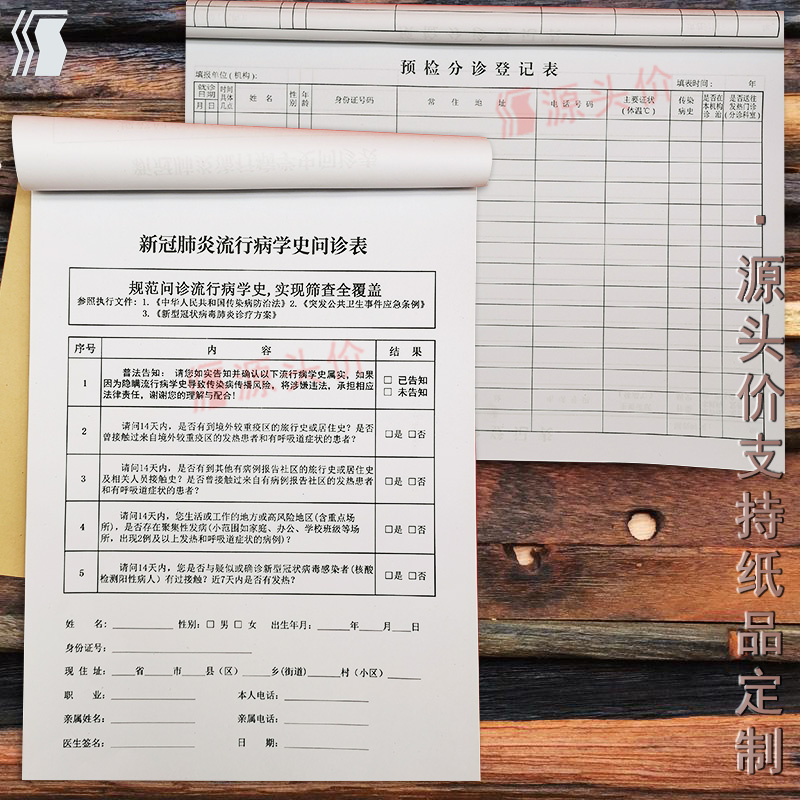 预检分诊登记表
填报单位(机构):
填表时间: 年
就诊日期
月 日
时间具体几点
姓名
性别
年龄
身份证号码
常住地址
电话号码
主要症状(体温℃)
传染病史
是否在本机构诊治
是否送往发热门诊(分诊科室)
源头价
新冠肺炎流行病学史问诊表
规范问诊流行病学史,实现筛查全覆盖
参照执行文件: 1.《中华人民共和国传染病防治法》2.《突发公共卫生事件应急条例》
3.《新型冠状病毒肺炎诊疗方案》
序号 内容 结果
源头价
1
普法告知: 请您如实告知并确认以下流行病学史属实, 如果
因为隐瞒流行病学史导致传染病传播风险, 将涉嫌违法, 承担相应
法律责任, 谢谢您的理解与配合!
□ 已告知
□ 未告知
2
请问14天内, 是否有到境外较重疫区的旅行史或居住史? 是否
曾接触过来自境外较重疫区的发热患者和有呼吸道症状的患者?
□是 □否
3
请问14天内, 是否有到其他有病例报告社区的旅行史或居住史
及相关人员接触史? 是否曾接触过来自有病例报告社区的发热患者
和有呼吸道症状的患者?
□是 □否
4
请问14天内, 您生活或工作的地方或高风险地区(含重点场
所), 是否存在聚集性发病(小范围如家庭、办公、学校班级等场
所, 出现2例及以上发热和呼吸道症状的病例)?
□是 □否
5
请问14天内, 您是否与疑似或确诊新型冠状病毒感染者(核酸
检测阳性病人) 有过接触? 近7天内是否有发热?
□是 □否
姓名:________ 性别: □ 男 □ 女 出生年月:____年____月____日
身份证号:________
现住址:____省____市____县(区)____乡(街道)____村(小区)____
职业:________ 本人电话:________
亲属姓名:________ 亲属电话:________
医生签名:________ 日期:________
·源头价支持纸品定制